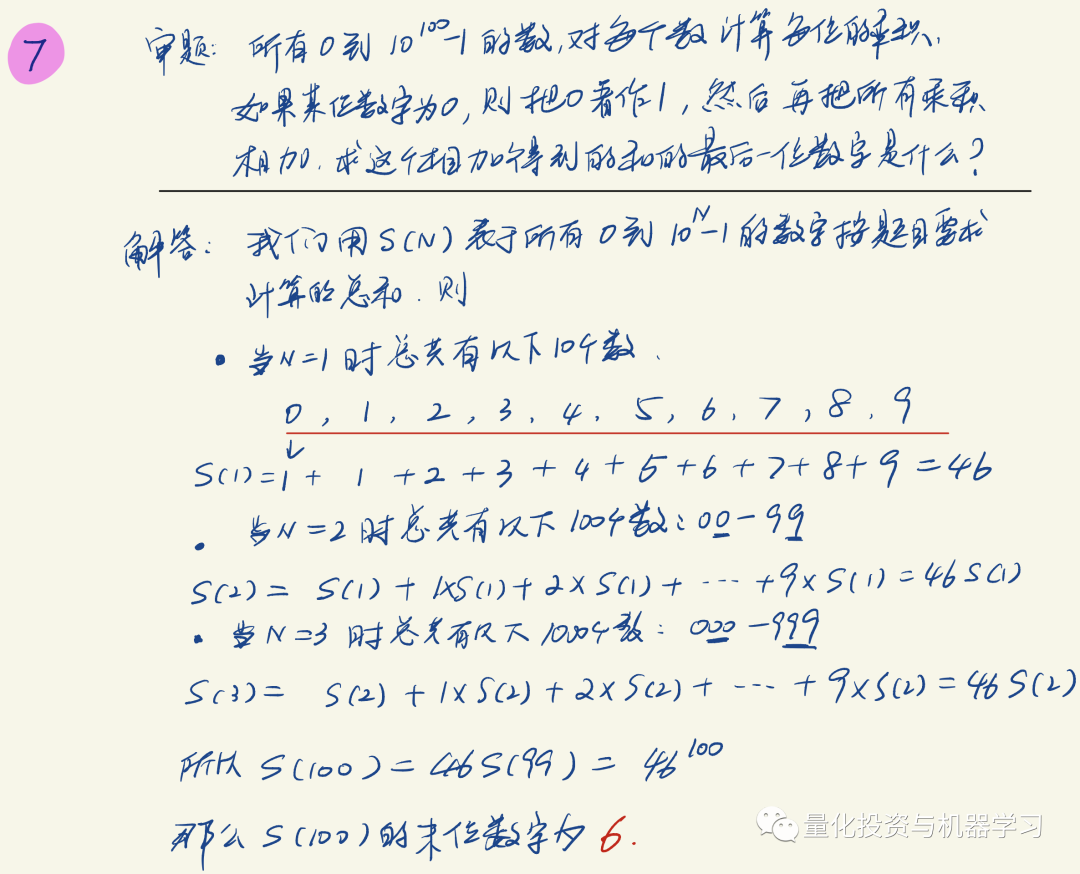 7
审题: 所有 0 到 10^100-1 的数,对每个数计算每位的乘积,
如果某位数字为0,则把0看作1,然后再把所有乘积
相加.求这个相加得到的和的最后一位数字是什么?
解答: 我们用 S(N) 表于所有 0 到 10^N-1 的数字按题目要求
计算的总和.则
• 当N=1时总共有以下10个数.
0, 1, 2, 3, 4, 5, 6, 7, 8, 9
↓
S(1)=1 + 1 +2+3+4+5+6+7+8+9=46
• 当N=2时总共有以下100个数:00-99
S(2)= S(1)+1×S(1)+2×S(1)+ ⋯ +9×S(1)=46S(1)
• 当N=3时总共有以下1000个数:000-999
S(3)= S(2)+1×S(2)+2×S(2)+ ⋯ +9×S(2)=46S(2)
所以 S(100)=46S(99)= 46^100
那么 S(100)的末位数字为 6.
量化投资与机器学习